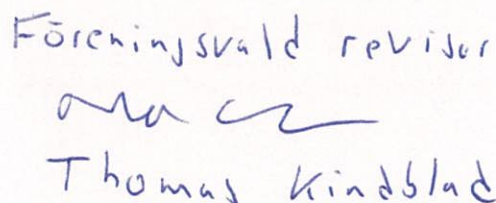 Föreningsvald revisor
Thomas Kindblad